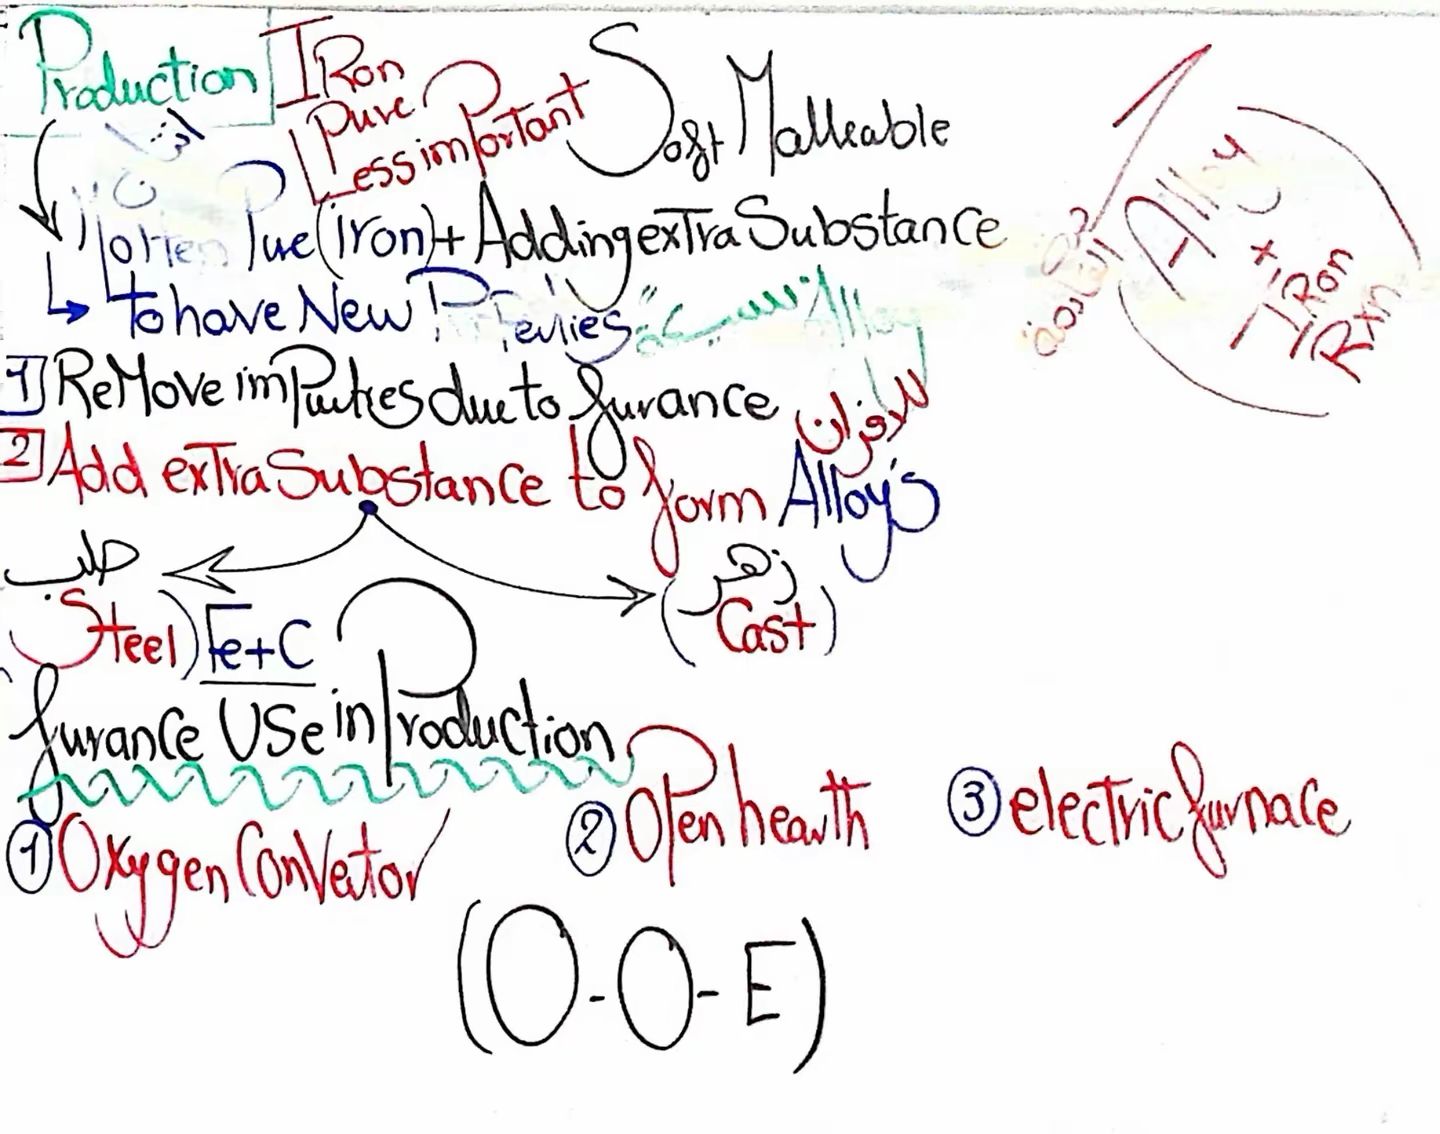 Production
IRon
Pure
Less important
Soft Malleable
Molten Pue (iron) + Adding exTra Substance
to have New
سبيكة Alloy
1 ReMove impurties due to furance
للافران
2 Add exTra Substance to form Alloy's
صلب
زهر
Steel) Fe+C
(Cast)
furance USe in Production
1 Oxygen Convertor
2 OPen hearth
3 electric furnace
(O-O-E)
Alloy
+ IRon
Rxn